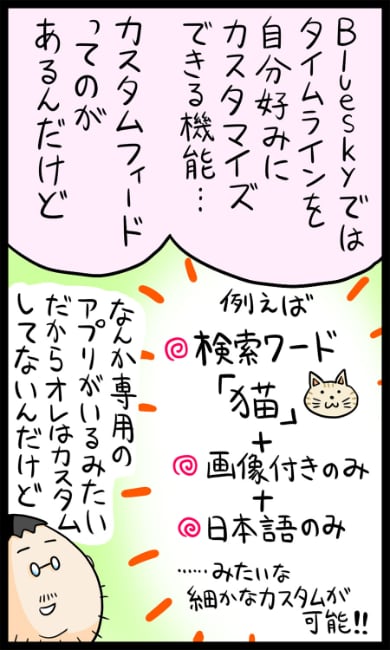 Blueskyでは
タイムラインを
自分好みに
カスタマイズ
できる機能…
カスタムフィード
ってのが
あるんだけど
例えば
検索ワード
「猫」
+
画像付きのみ
+
日本語のみ
……みたいな
細かなカスタムが
可能!!
なんか専用の
アプリがいるみたい
だからオレはカスタム
してないんだけど